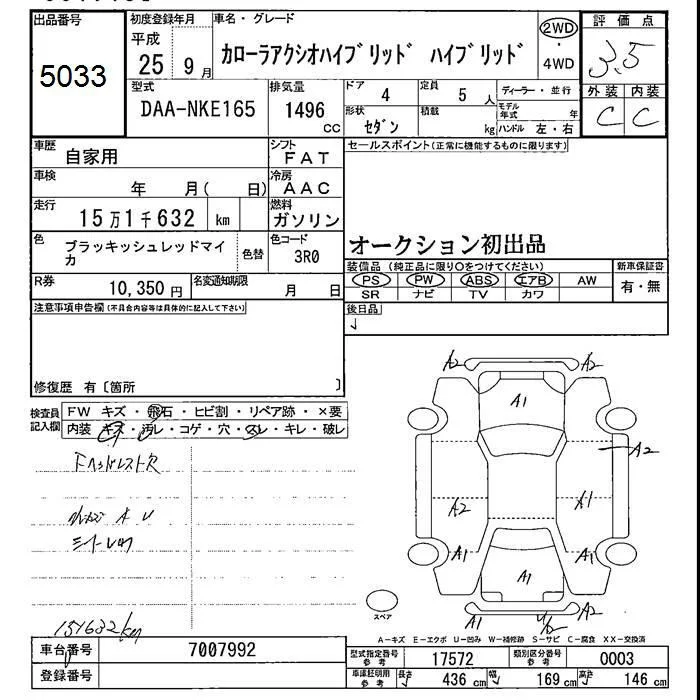 出品番号
5033
初度登録年月
平成
25 9月
車名・グレード
カローラアクシオハイブリッド ハイブリッド
2WD
・
4WD
評価点
3.5
外装 内装
C C
型式
DAA-NKE165
排気量
1496
CC
ドア 4
定員 5 人
形状
セダン
積載
kg
ディーラー・並行
モデル年式 年
ハンドル 左・右
車歴
自家用
シフト
FAT
車検
年 月( 日)
冷房
AAC
走行
15万1千632 km
燃料
ガソリン
色
ブラッキッシュレッドマイカ
色替
色コード
3R0
R券
10,350 円
名変通知期限
月 日
セールスポイント(正常に機能するものに限ります)
オークション初出品
装備品(純正品に限り○をつけてください)
PS PW ABS エアB AW
SR ナビ TV カワ
新車保証書
有・無
注意事項申告欄(不具合内容等は具体的に記入して下さい)
後日品
修復歴 有〔箇所 〕
検査員記入欄
FW キズ・飛石・ヒビ割・リペア跡・×要
内装・キズ・汚レ・コゲ・穴・スレ・キレ・破レ
FヘッドレストR
A U
シートレス
151632km
A2 A2
A1
A2
A2 A1
A1 A1
A1
A1 A2
スペア
A-キズ E-エクボ U-凹み W-補修跡 S-サビ C-腐食 XX-交換済
車台番号
7007992
登録番号
型式指定番号
参考
17572
類別区分番号
参考
0003
車庫証明用
参考
長さ 436 cm
幅 169 cm
高さ 146 cm